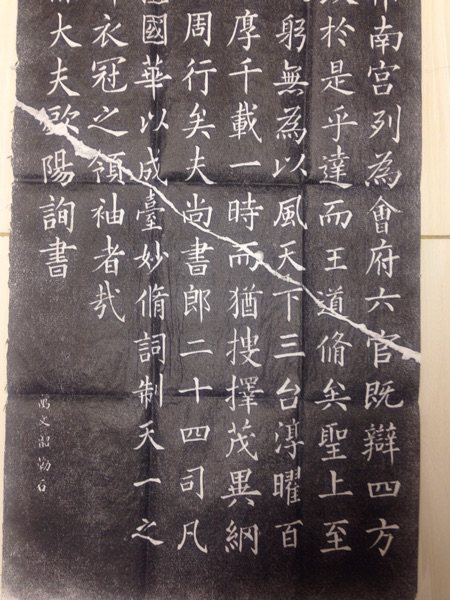 南宫列為會府六官既辯四方
於是乎達而王道脩矣聖上至
躬無為以風天下三台淳曜百
厚千載一時而猶搜擇茂異綱
周行矣夫尚書郎二十四司凡
國華以成臺妙脩詞制天一之
衣冠之領袖者哉
大夫歐陽詢書
萬文韶勒石